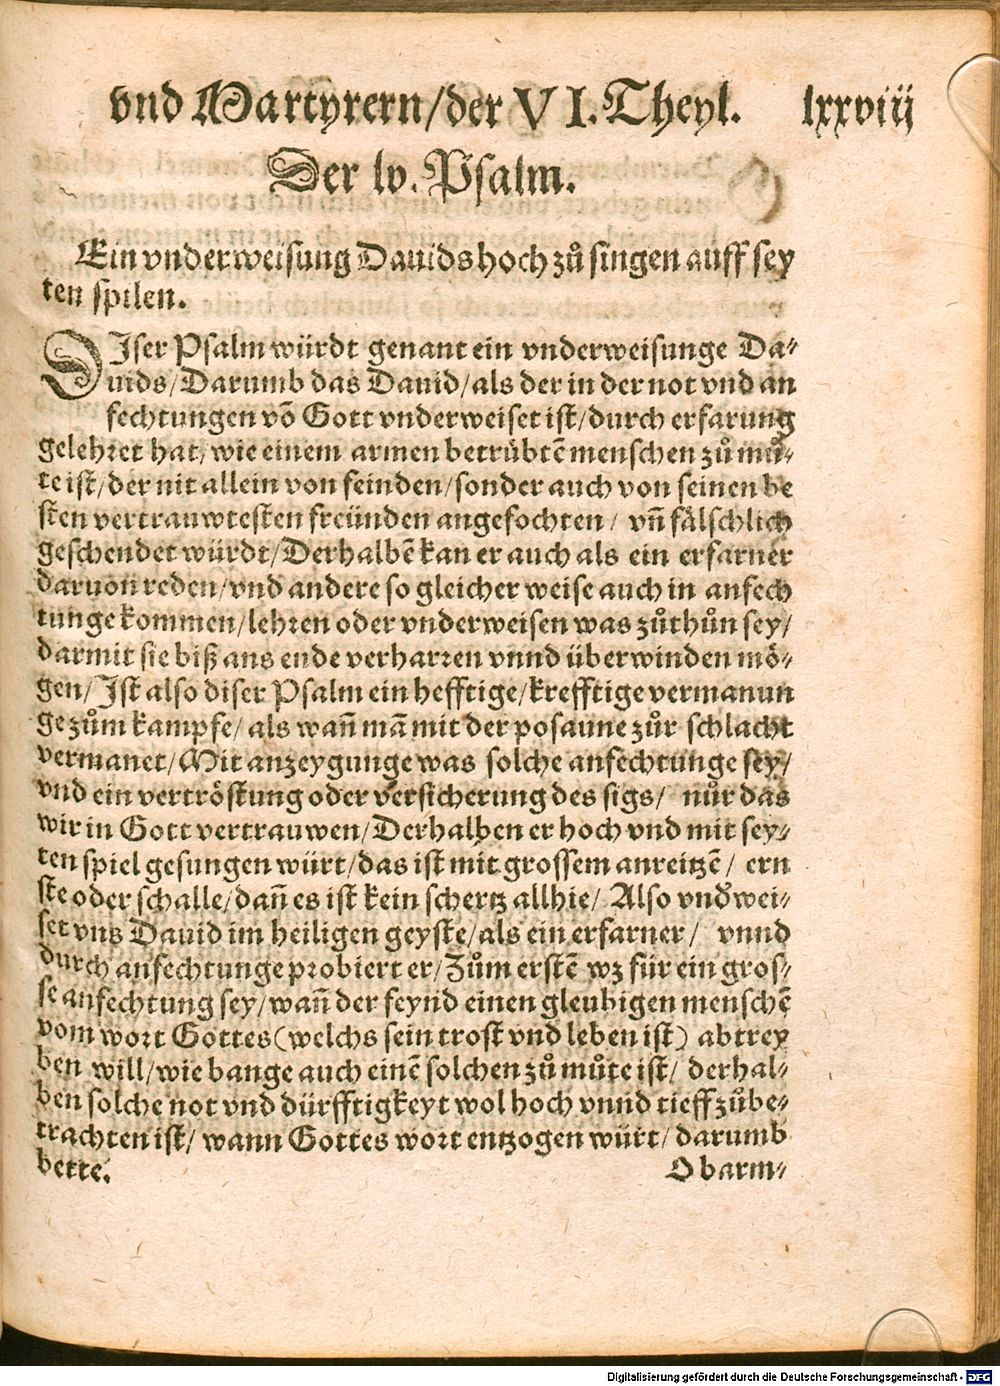 vnd Martyrern/der VI. Theyl. lxxviij
Der lv. Psalm.
Ein vnderweisung Dauids hoch zů singen auff sey
ten spilen.
DIser Psalm würdt genant ein vnderweisunge Da⸗
uids/Darumb das Dauid/als der in der not vnd an
fechtungen võ Gott vnderweiset ist/durch erfarung
gelehret hat/wie einem armen betrübtẽ menschen zů mů⸗
te ist/der nit allein von feinden/sonder auch von seinen be
sten vertrauwtesten freünden angefochten/ vñ fälschlich
geschendet würdt/Derhalbẽ kan er auch als ein erfarner
daruon reden/vnd andere so gleicher weise auch in anfech
tunge kommen/lehren oder vnderweisen was zůthůn sey/
darmit sie biß ans ende verharren vnnd überwinden mö⸗
gen/Ist also diser Psalm ein hefftige/krefftige vermanun
ge zům kampfe/als wañ mã mit der posaune zůr schlacht
vermanet/Mit anzeygunge was solche anfechtunge sey/
vnd ein vertröstung oder versicherung des sigs/ nůr das
wir in Gott vertrauwen/Derhalben er hoch vnd mit sey⸗
ten spiel gesungen würt/das ist mit grossem anreitzẽ/ ern
ste oder schalle/dañ es ist kein schertz allhie/ Also vnd̕wei⸗
set vns Dauid im heiligen geyste/als ein erfarner/ vnnd
durch anfechtunge probiert er/Zům erstẽ wz für ein gros⸗
se anfechtung sey/wañ der feynd einen gleubigen menschẽ
vom wort Gottes(welchs sein trost vnd leben ist) abtrey
ben will/wie bange auch einẽ solchen zů můte ist/ derhal⸗
ben solche not vnd dürfftigkeyt wol hoch vnnd tieff zůbe⸗
trachten ist/ wann Gottes wort entzogen würt/darumb
bette. O barm⸗
Digitalisierung gefördert durch die Deutsche Forschungsgemeinschaft - DFG